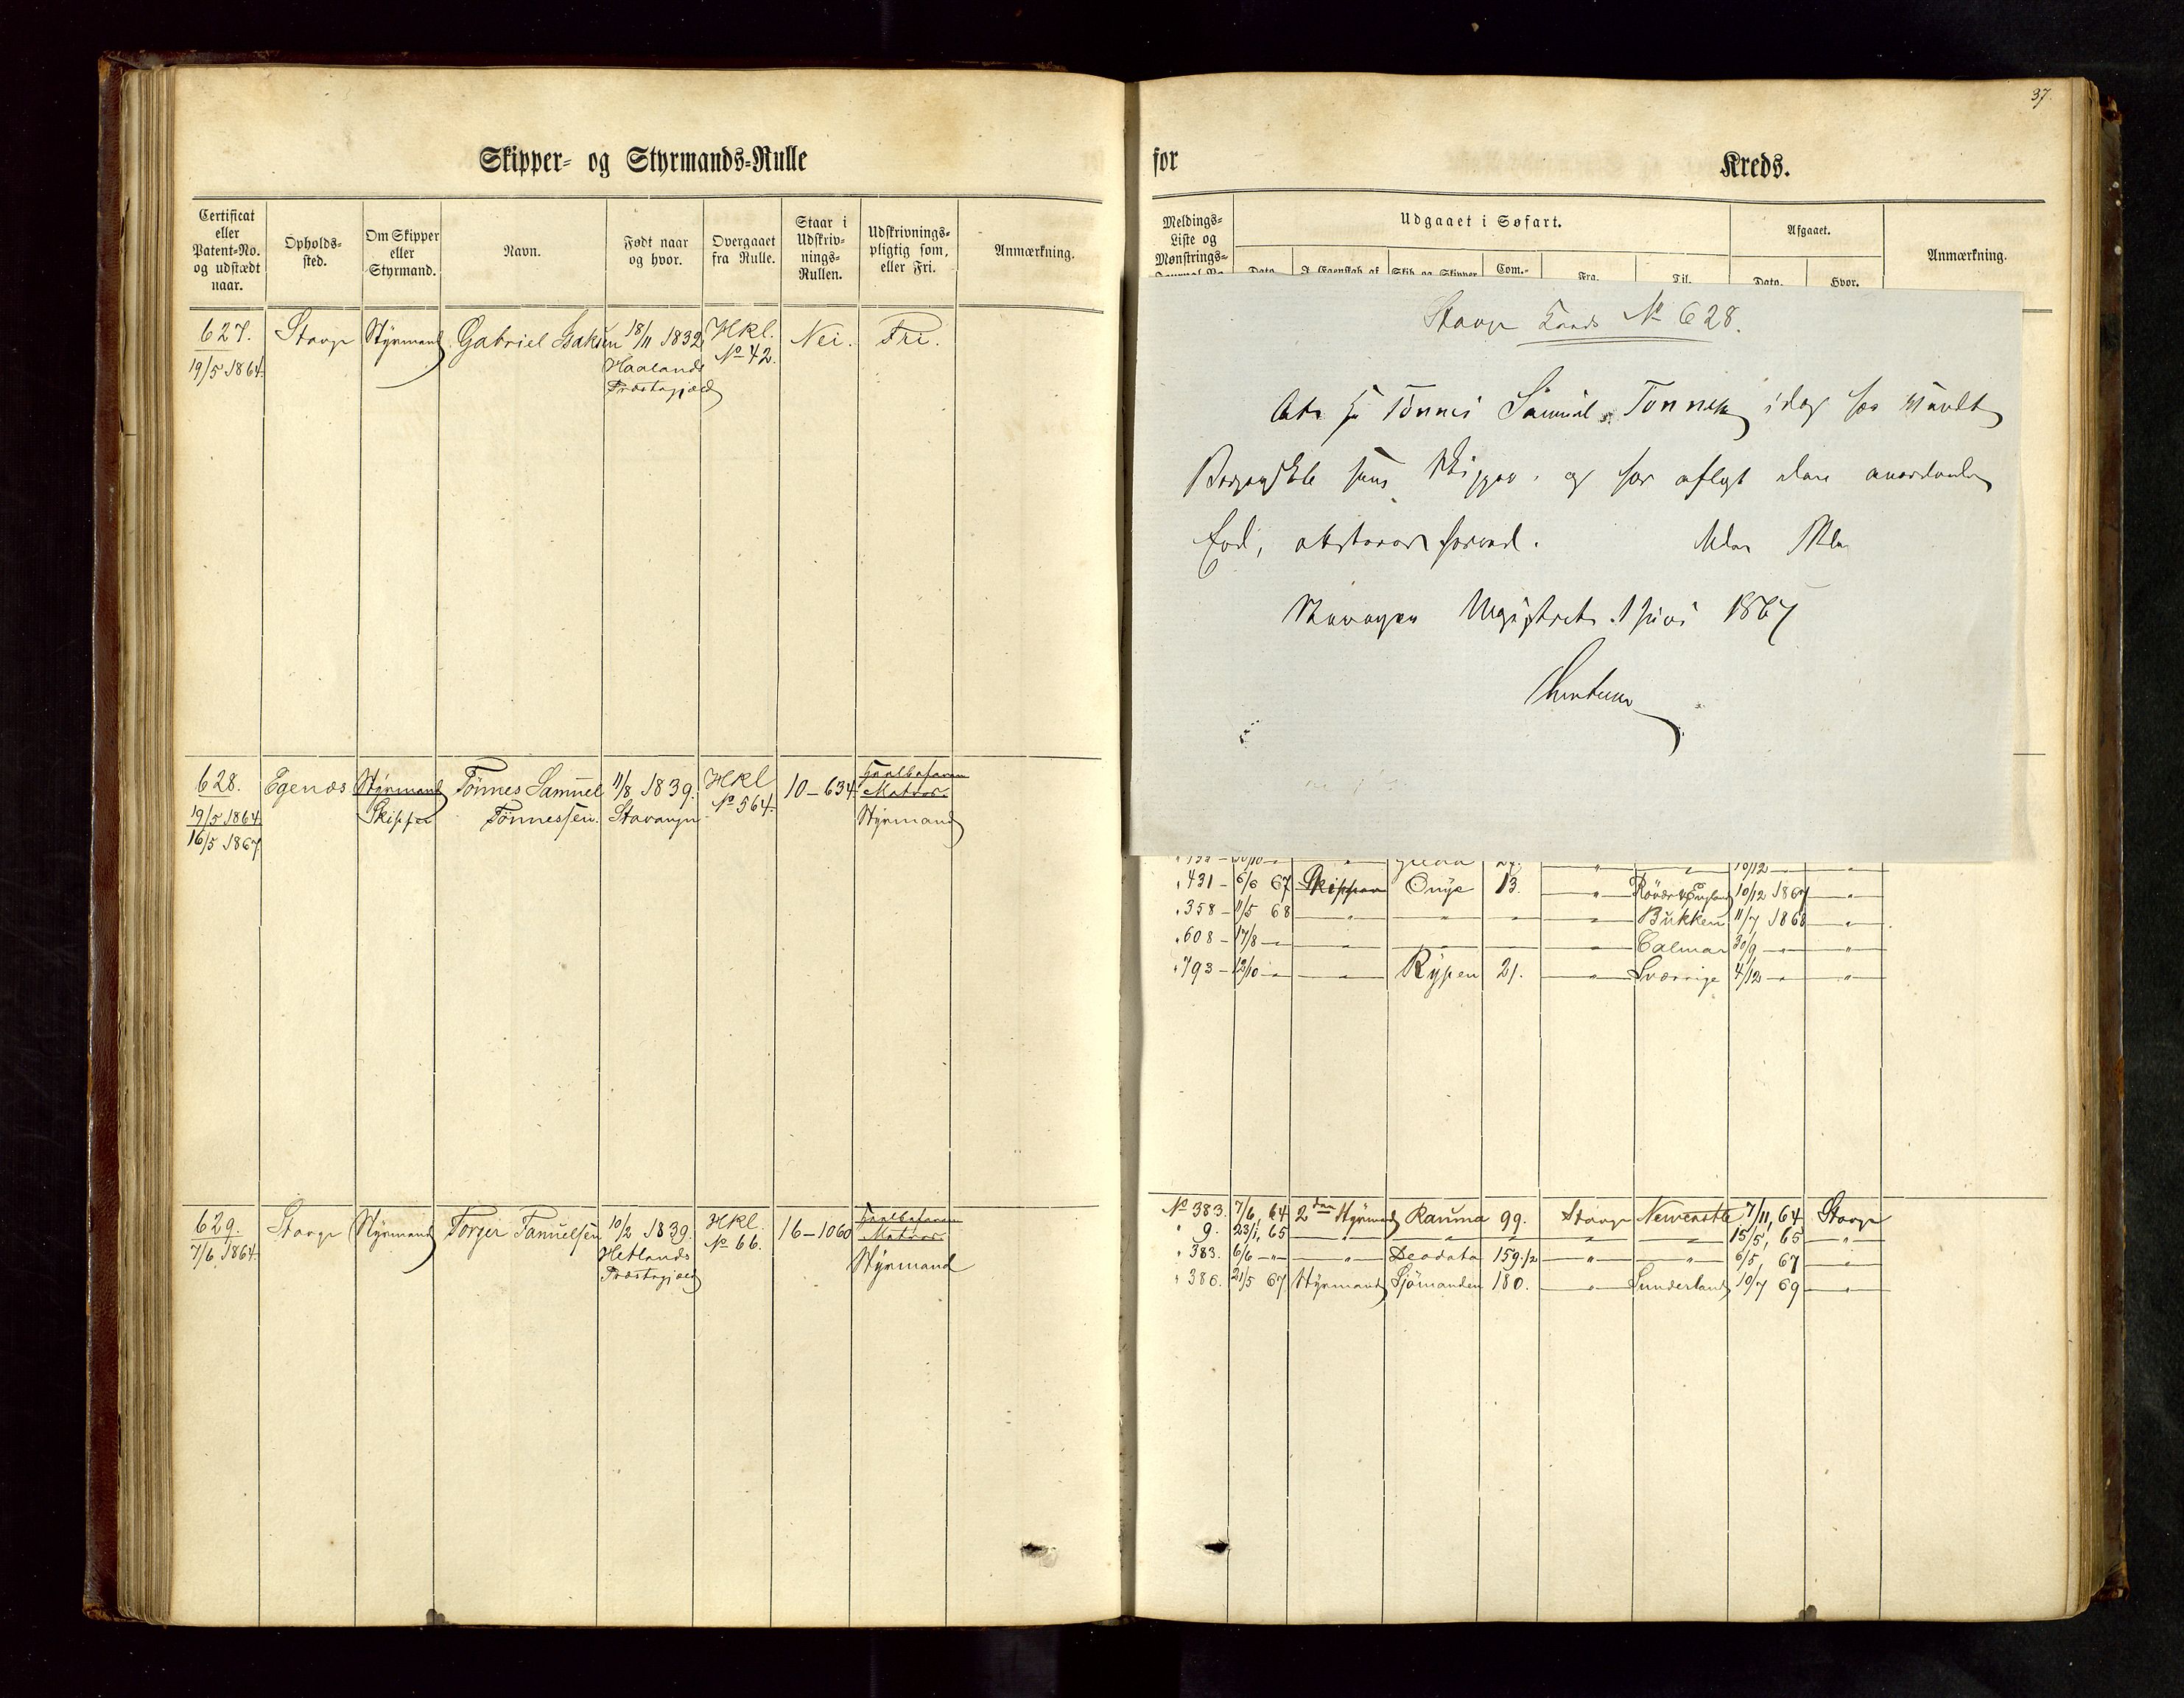 37.
Skipper- og Styrmands-Rulle
for
Kreds.
Certificat eller Patent-No. og udstædt naar.
Opholds-sted.
Om Skipper eller Styrmand.
Navn.
Født naar og hvor.
Overgaaet fra Rulle.
Staar i Udskriv-nings-Rullen.
Udskrivnings-pligtig som, eller Fri.
Anmærkning.
Meldings-Liste og Mønstrings-
Udgaaet i Søfart.
Dato.
Com.-
Fra.
Til.
Afgaaet.
Dato.
Hvor.
Anmærkning.
627. Stavgr Styrmand Gabriel Isaksen 18/11 1832 Hkl. Nei. Fri.
19/5 1864. Haalands No 42.
Præstegjæld
628. Egenæs Styrmand Tönnes Samuel 11/8 1839. Hkl 10-634 Matros.
19/5 1864 Skipper Tönnessen. Stavanger No 564. Styrmand
16/5 1867
629. Stavgr Styrmand Torger 10/2 1839. Hkl. 16-1060 Matros.
7/6 1864. Hetlands No 66. Styrmand
Præstegjæld
Stavgr Kreds No 628.
At Tönnes Samuel Tönnessen idag har
Borgerskab som Skipper, og har aflagt den anordnede
Eed,
Stavanger Magistrat 1 Juni 1867
431 - 6/6 67 Skipper 13. " 10/12 1867 "
358 - 11/5 68 " " " " Bukken 11/7 1868 "
608 - 17/8 - " Calmar 30/9 - "
793 - 12/10 - " Rypen 21. " Sverrige 4/12 - "
No 383. 7/6 64 2den Styrmand Rauma 99. Stavgr Newcastle 7/11, 64 Stavgr
" 9. 23/1, 65 " " " " " 15/5, 65 "
" 383. 6/6 - " Deodata 159.1/2 " " 6/5, 67 "
" 386. 21/5 67 Styrmand Sjömanden 180. " Sunderland 10/7 69 "